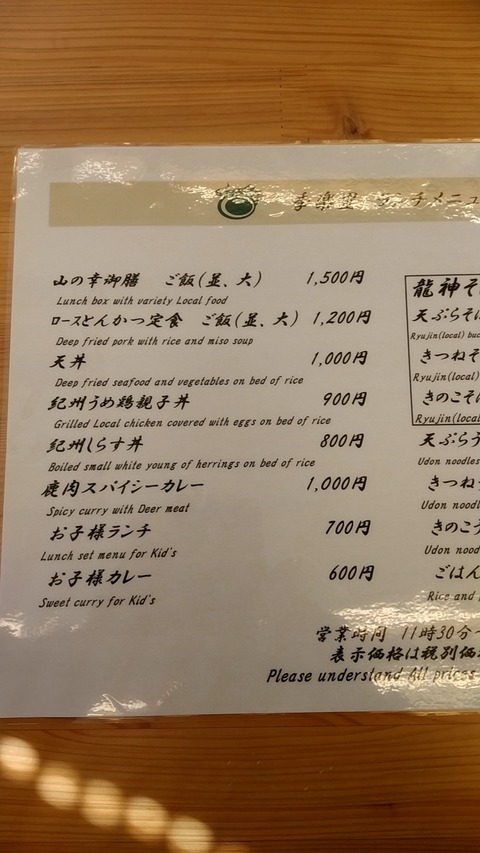 季楽里 ランチメニュ
山の幸御膳 ご飯(並、大) 1,500円
Lunch box with variety Local food
ロースとんかつ定食 ご飯(並、大) 1,200円
Deep fried pork with rice and miso soup
天丼 1,000円
Deep fried seafood and vegetables on bed of rice
紀州うめ鶏親子丼 900円
Grilled Local chicken covered with eggs on bed of rice
紀州しらす丼 800円
Boiled small white young of herrings on bed of rice
鹿肉スパイシーカレー 1,000円
Spicy curry with Deer meat
お子様ランチ 700円
Lunch set menu for Kid's
お子様カレー 600円
Sweet curry for Kid's
龍神そ
天ぷらそ
Ryujin(local) buc
きつねそ
Ryujin(local)
きのこそ
Ryujin(local
天ぷらう
Udon noodles
きつね
Udon nood
きのこう
Udon nood
ごはん
Rice and
営業時間 11時30分~
表示価格は税別価
Please understand All prices